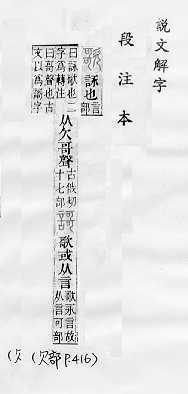 說文解字
段注本
歌 詠也 言部
曰詠歌也二
字爲轉注
曰哥聲也古
文以爲謌字
从欠哥聲 古俄切十七部 謌 歌或从言 歌永言故从言可部
(欠部 P.416)